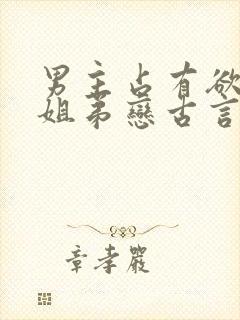 男主占有欲
姐弟戀古言
章孝嚴